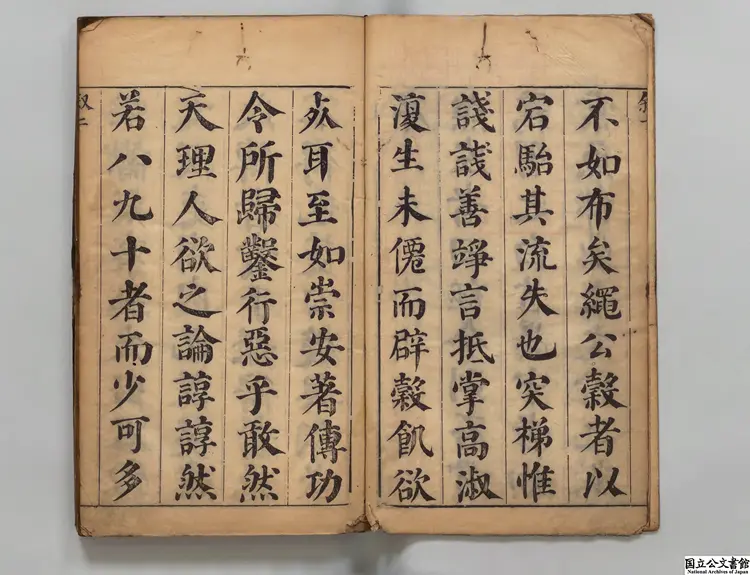 不如布矣繩公穀者以
宕駘其流失也突梯惟
諓諓善竫言抵掌高淑
復生未僊而辟穀飢欲
死耳至如崇安著傳功
令所歸鑿行惡乎敢然
天理人欲之論諄諄然
若八九十者而少可多
叙二
国立公文書館
National Archives of Japan